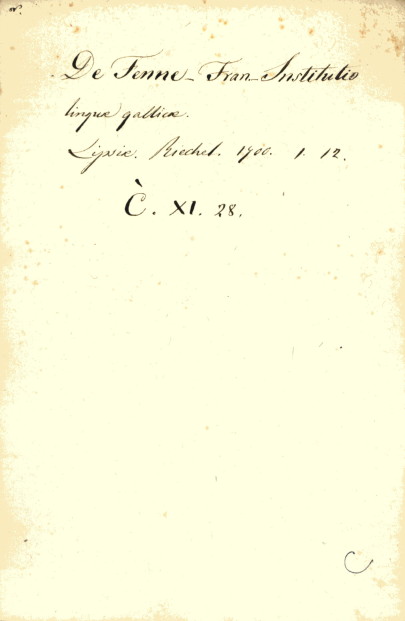 De Fenne - Fran - Institutio
linguæ gallicæ.
Lipsiæ. Riechel. 1700. 1. 12.
C̀. XI. 28.
C